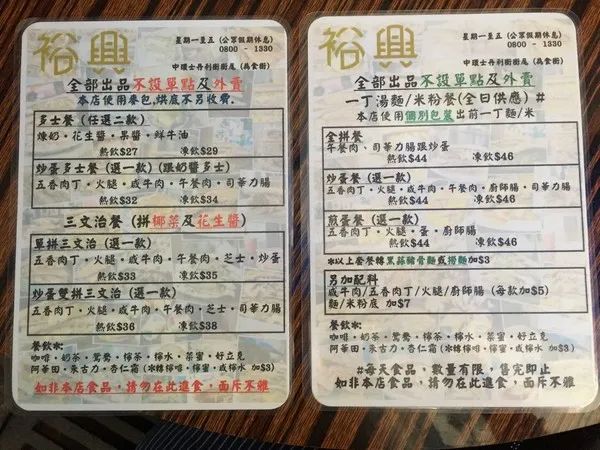 裕興
星期一至五 (公眾假期休息)
0800 - 1330
中環士丹利街街尾 (為食街)
全部出品不設單點及外賣
本店使用麥包,烘底不另收費.
多士餐 (任選二款)
煉奶・花生醬・果醬・鮮牛油
熱飲$27 凍飲$29
炒蛋多士餐 (選一款) (跟奶醬多士)
五香肉丁・火腿・咸牛肉・午餐肉・司華力腸
熱飲$32 凍飲$34
三文治餐 (拼椰菜及花生醬)
單拼三文治 (選一款)
五香肉丁・火腿・咸牛肉・午餐肉・芝士・炒蛋
熱飲$33 凍飲$35
炒蛋雙拼三文治 (選一款)
五香肉丁・火腿・咸牛肉・午餐肉・芝士・司華力腸
熱飲$36 凍飲$38
餐飲*:
咖啡・奶茶・鴛鴦・檸茶・檸水・菜蜜・好立克
阿華田・朱古力・杏仁霜 (*轉檸啡・檸蜜・或咸檸水 加$3)
如非本店食品，請勿在此進食，面斥不雅
裕興
星期一至五 (公眾假期休息)
0800 - 1330
中環士丹利街街尾 (為食街)
全部出品不設單點及外賣
一丁湯麵/米粉餐(全日供應) #
本店使用個別包裝出前一丁麵/米
全拼餐
午餐肉、司華力腸跟炒蛋
熱飲$44 凍飲$46
炒蛋餐 (選一款)
五香肉丁・火腿・咸牛肉・午餐肉・廚師腸・司華力腸
熱飲$44 凍飲$46
煎蛋餐 (選一款)
五香肉丁・火腿・蛋・廚師腸
熱飲$44 凍飲$46
*以上套餐轉黑蒜豬骨麵或撈麵加$3
另加配料
咸牛肉/五香肉丁/火腿/廚師腸 (每款加$5)
麵/米粉底 加$7
餐飲*:
咖啡・奶茶・鴛鴦・檸茶・檸水・菜蜜・好立克
阿華田・朱古力・杏仁霜 (*轉檸啡・檸蜜・或咸檸水 加$3)
#每天食品，數量有限，售完即止
如非本店食品，請勿在此進食，面斥不雅